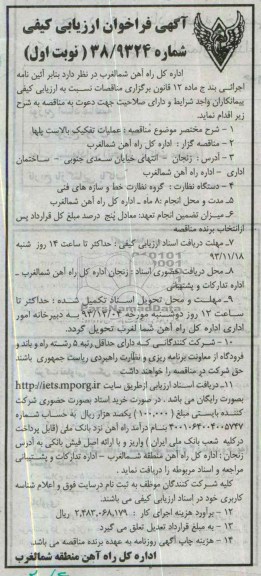 آگهی فراخوان ارزیابی کیفی
شماره ۳۸/۹۳۲۴ ( نوبت اول)
اداره کل راه آهن شمالغرب در نظر دارد بنابر آئین نامه
اجرائی بند ج ماده ۱۲ قانون برگزاری مناقصات نسبت به ارزیابی کیفی
پیمانکاران واجد شرایط و دارای صلاحیت جهت دعوت به مناقصه به شرح
زیر اقدام نماید.
۱ – شرح مختصر موضوع مناقصه : عملیات تفکیک بالاست پلها
۲ – مناقصه گزار : اداره کل راه آهن شمالغرب
۳ – آدرس : زنجان – انتهای خیابان سعدی جنوبی – ساختمان
اداری – اداره راه آهن شمالغرب
۴ – دستگاه نظارت : گروه نظارت خط و سازه های فنی
۵ – مدت و محل انجام : ۸ ماه – اداره کل راه آهن شمالغرب
۶ – میزان تضمین انجام تعهد: معادل پنج درصد مبلغ کل قرارداد پس
ازانتخاب برنده مناقصه
۷ – مهلت دریافت اسناد ارزیابی کیفی : حداکثر تا ساعت ۱۴ روز شنبه
۹۳/۱۱/۱۸
۸ – محل دریافت حضوری اسناد : زنجان اداره کل راه آهن شمالغرب –
اداره تدارکات و پشتیبانی
۹ – مهلت و محل تحویل اسناد تکمیل شده : حداکثر تا
ساعت ۱۲ روز دوشنبه مورخه ۹۳/۱۲/۰۴ به دبیرخانه امور
اداری اداره کل راه آهن شما لغرب تحویل گردد.
۱۰ – شرکت کنندگانی که دارای حداقل رتبه ۵ رشته راه و باند و
فرودگاه از معاونت برنامه ریزی و نظارت راهبردی ریاست جمهوری باشند
حق شرکت در مناقصه را خواهند داشت
۱۱ – دریافت اسناد ارزیابی ازطریق سایت http://iets.mporg.ir
بصورت رایگان می باشد . در صورت خرید اسناد بصورت حضوری شرکت
کننده بایستی مبلغ ( ۱۰۰,۰۰۰ ) یکصد هزار ریال به حساب شماره
بنام درآمد راه آهن نزد بانک ملی (قابل پرداخت
درکلیه شعب بانک ملی ایران ) واریز و با ارائه اصل فیش بانکی به آدرس
زنجان : اداره کل راه آهن منطقه شمالغرب – اداره تدارکات و پشتیبانی
مراجعه و اسناد مربوطه را دریافت نمایند .
کلیه شرکت کنندگان موظف به ثبت نام درسایت فوق و اعلام شناسه
کاربری خود در اسناد ارزیابی کیفی می باشند.
۱۲ – برآورد هزینه اجرای کار : ۲,۴۸۳,۰۶۸,۱۷۹ ریال
۱۳ – به مبلغ قرارداد تعدیل تعلق می گیرد
۱۴ – هزینه چاپ آگهی روزنامه به عهده برنده مناقصه می باشد
اداره کل راه آهن منطقه شمالغرب